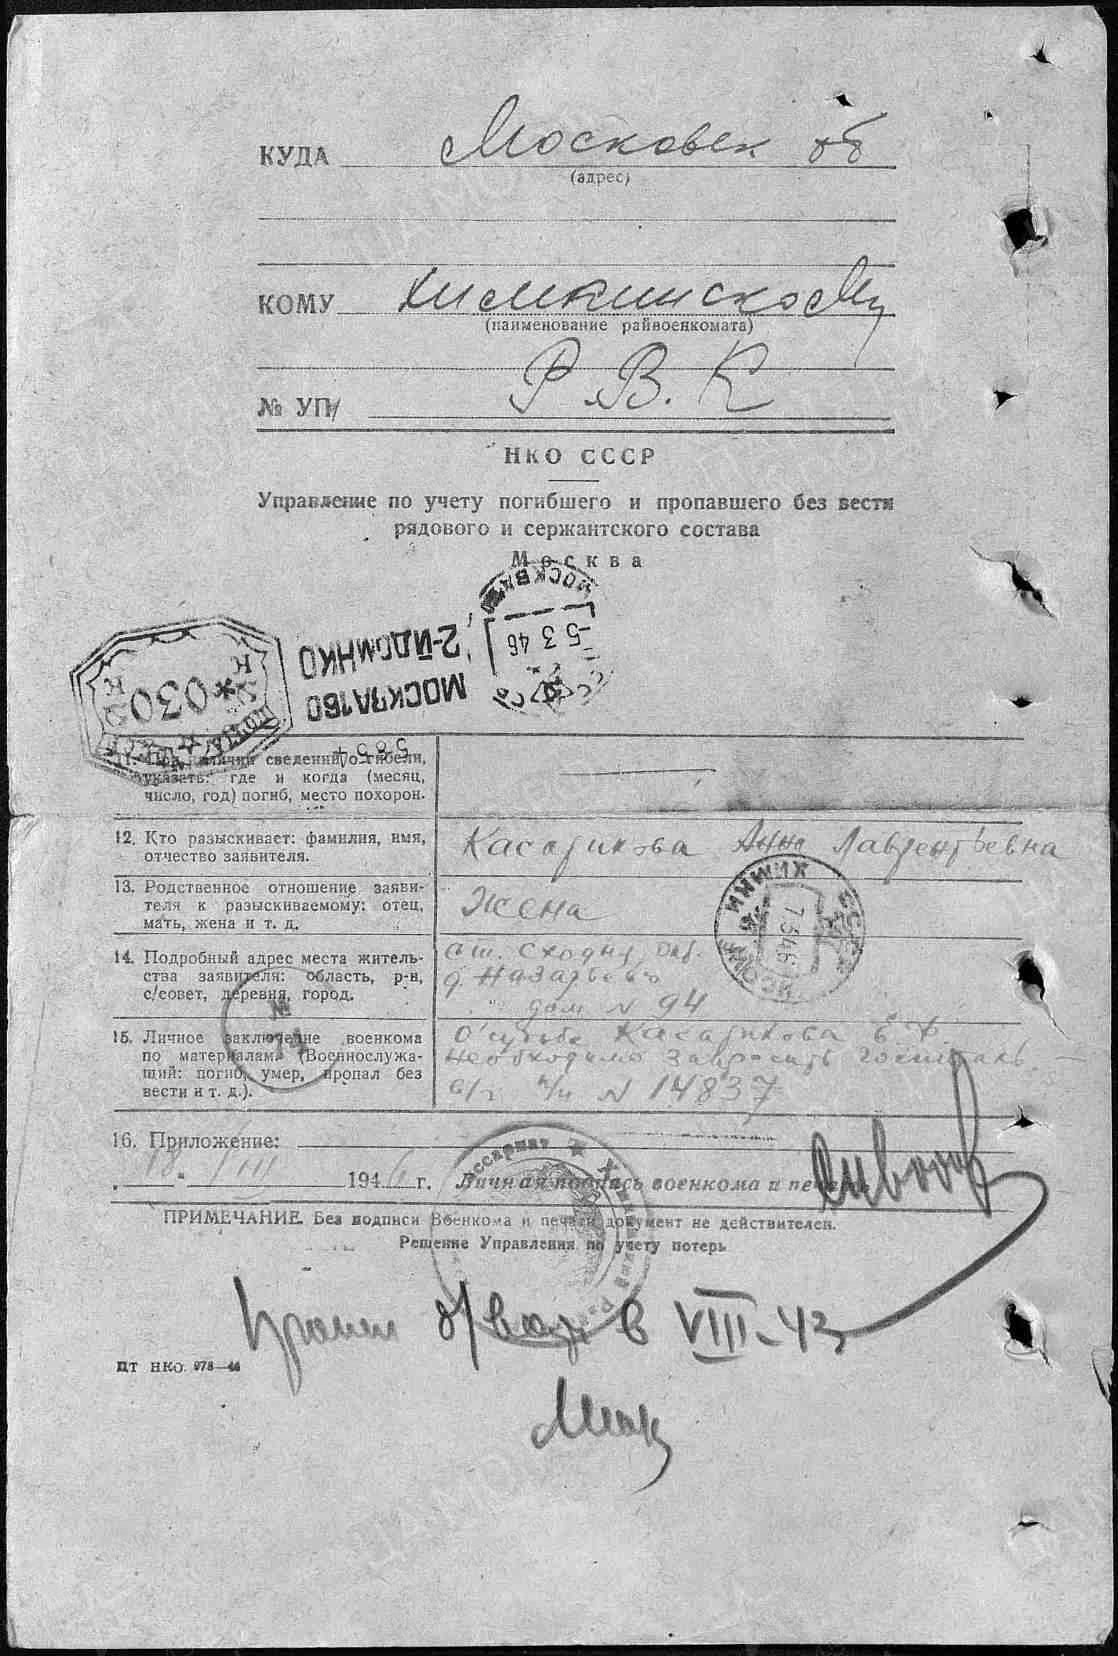 КУДА Московск об
(адрес)
КОМУ Химкинскому
(наименование райвоенкомата)
Р.В.К
№ УПИ
НКО СССР
Управление по учету погибшего и пропавшего без вести
рядового и сержантского состава
Москва
МОСКВА
-5 3 46
2-Й ДОМ НКО
МОСКВА 160
*030
11. При наличии сведений о гибели,
указать: где и когда (месяц,
число, год) погиб, место похорон.
12. Кто разыскивает: фамилия, имя,
отчество заявителя.
Касаткинова Анна Лаврентьевна
13. Родственное отношение заяви-
теля к разыскиваемому: отец,
мать, жена и т. д.
Жена
14. Подробный адрес места житель-
ства заявителя: область, р-н,
с/совет, деревня, город.
ст. Сходня, окт.
д. Назарьево
дом N 94
15. Личное заключение военкома
по материалам (Военнослужа-
щий: погиб, умер, пропал без
вести и т. д.).
О судьбе
необходимо запросить госпиталь
N 14837
ХИМКИ
7 3 46
16. Приложение:
194 г. Личная подпись военкома и печать
ПРИМЕЧАНИЕ. Без подписи Военкома и печати документ не действителен.
Решение Управления по учету потерь
Пропал б/вести в VIII-43
ЦТ НКО. 978—46